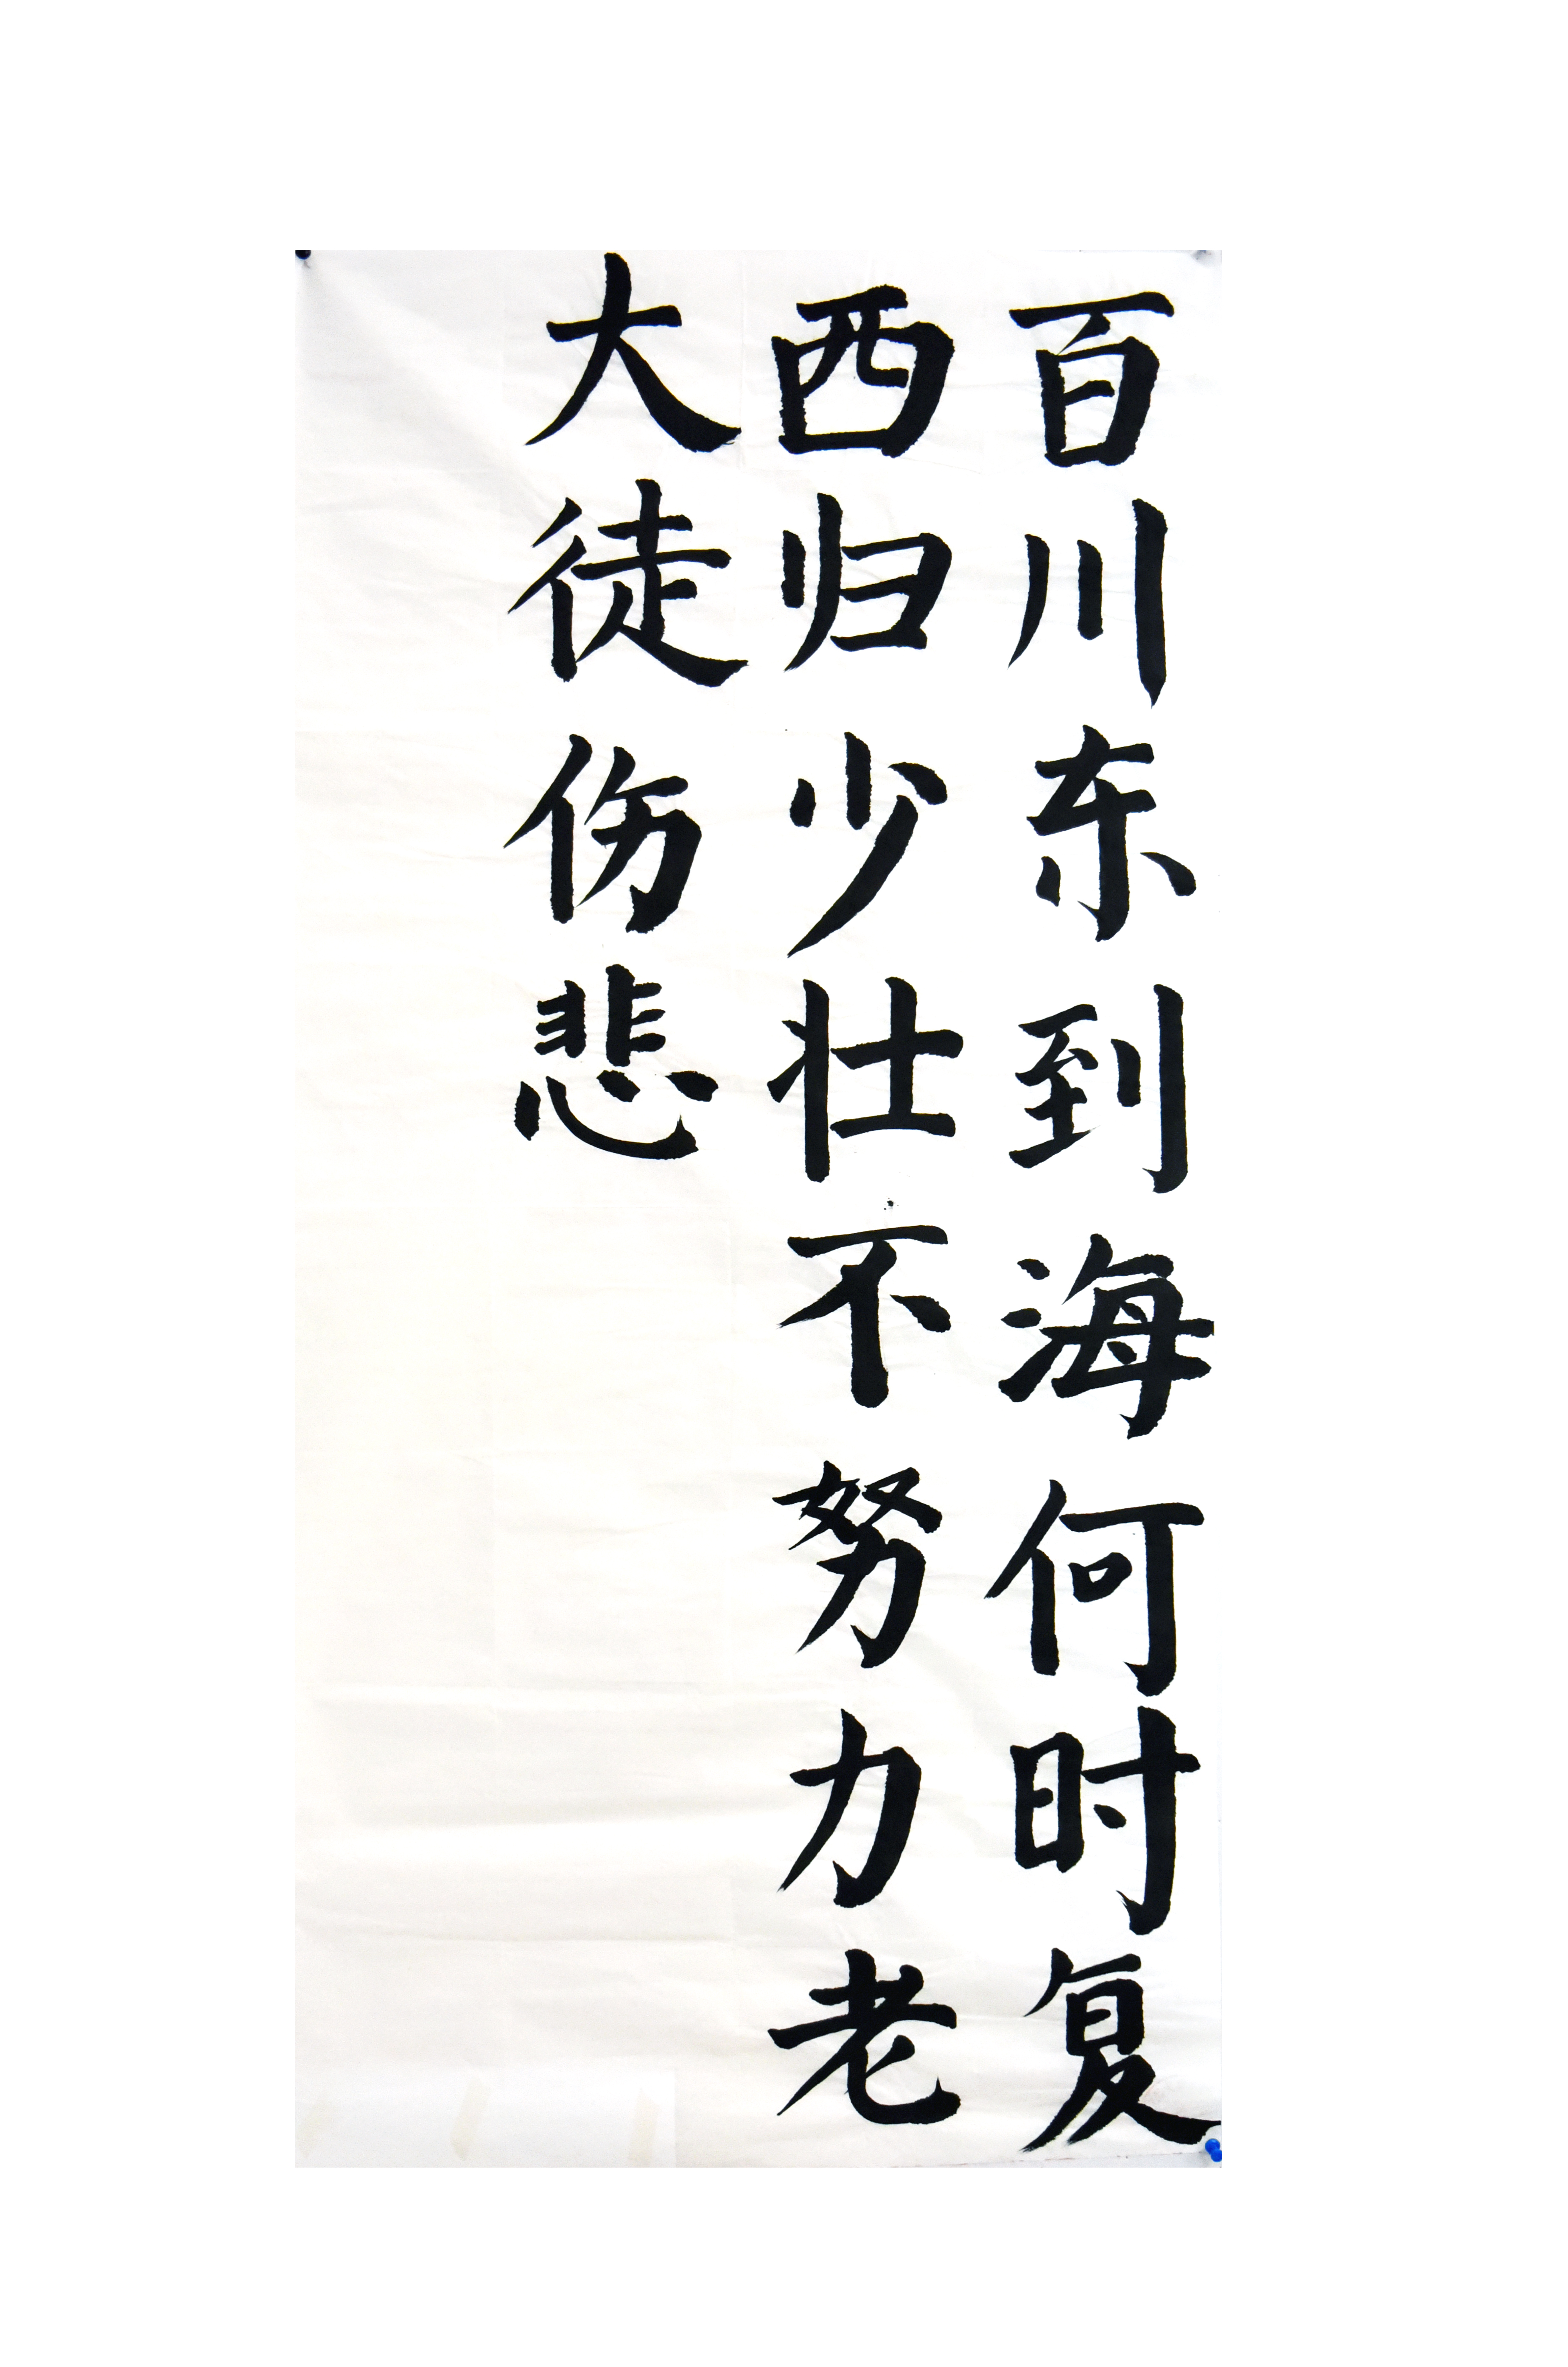 百川东到海何时复
西归少壮不努力老
大徒伤悲